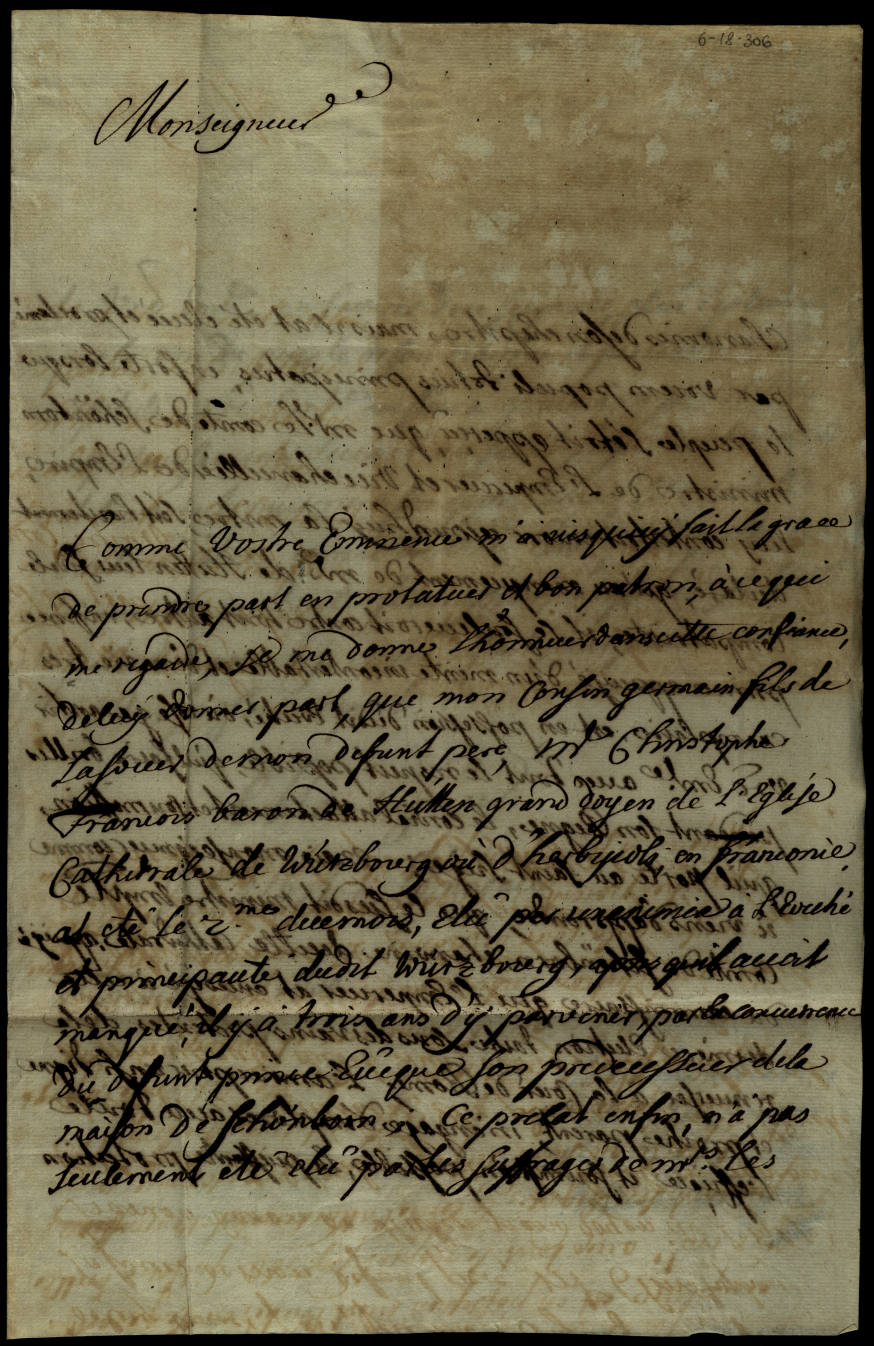 6-18-306
Monseigneur
Comme Vostre Eminence m'a jusqu'icy fait la grace
de prendre part en protatueur et bon patron, à ce qui
me regarde, Je me donne l'honneur dans cette confiance,
de luy donner part, que mon Cousin germain fils de
la soeur de mon defunt pere, Mr Christophe
Francois baron de Hutten grand doyen de l'Eglise
Cathedrale de Wurzbourg ou d'herbipolis en Franconie
at eté le 2.me du mois, Elû par unanimia à l'Eveché
et principauté dudit Wurzbourg, apres qu'il avoit
manqué, il y a trois ans d'y parvenir, par la concurrence
du defunt prince Evêque son predecesseur de la
maison de Schönborn. Ce prelat enfin, n'a pas
seulement eté elû par les suffrages de Mrs. les